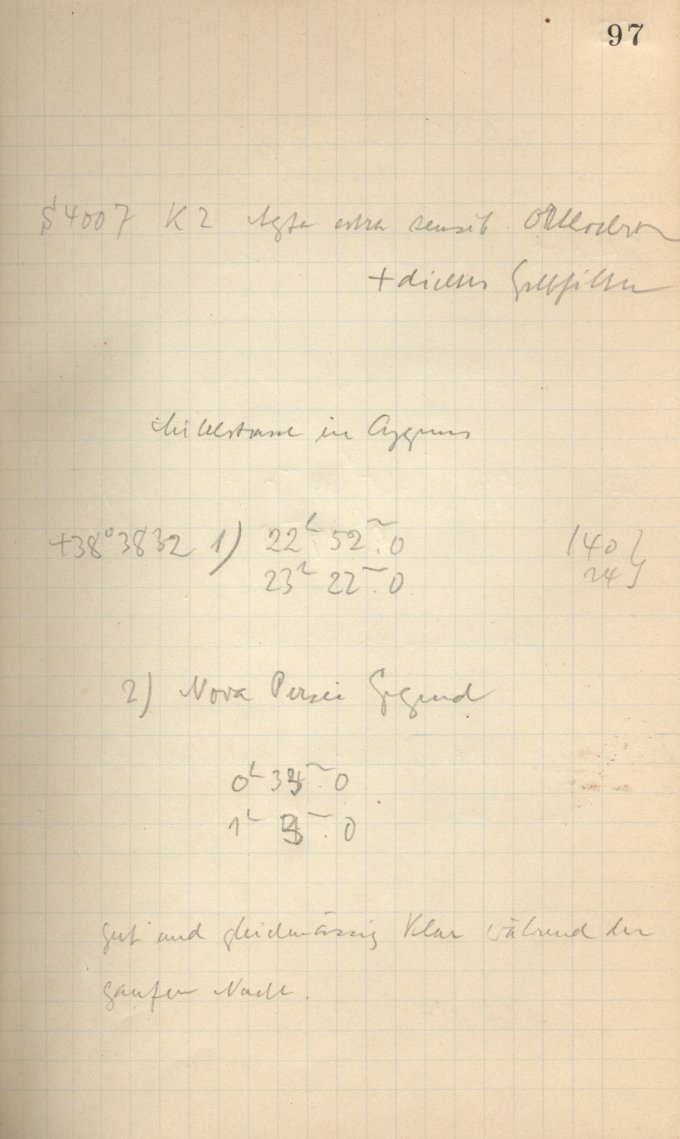 97
§4007 K2 Agfa extra sensib. Orthochrom
+ dichtes Gelbfilter
Milchstrasse in Cygnus
+38°3832 1) 22h 52m.0 140}
23h 22m.0 24}
2) Nova Persei Gegend
0h 35m.0
1h 5m.0
gut und gleichmässig klar während der
ganzen Nacht.